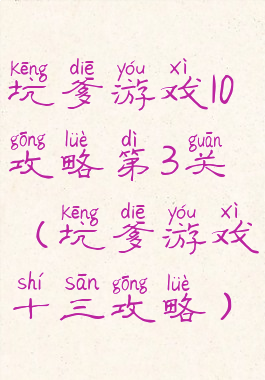 kēng diē yóu xì
坑爹游戏10
gōng lüè dì guān
攻略第3关
kēng diē yóu xì
（坑爹游戏
shí sān gōng lüè
十三攻略）